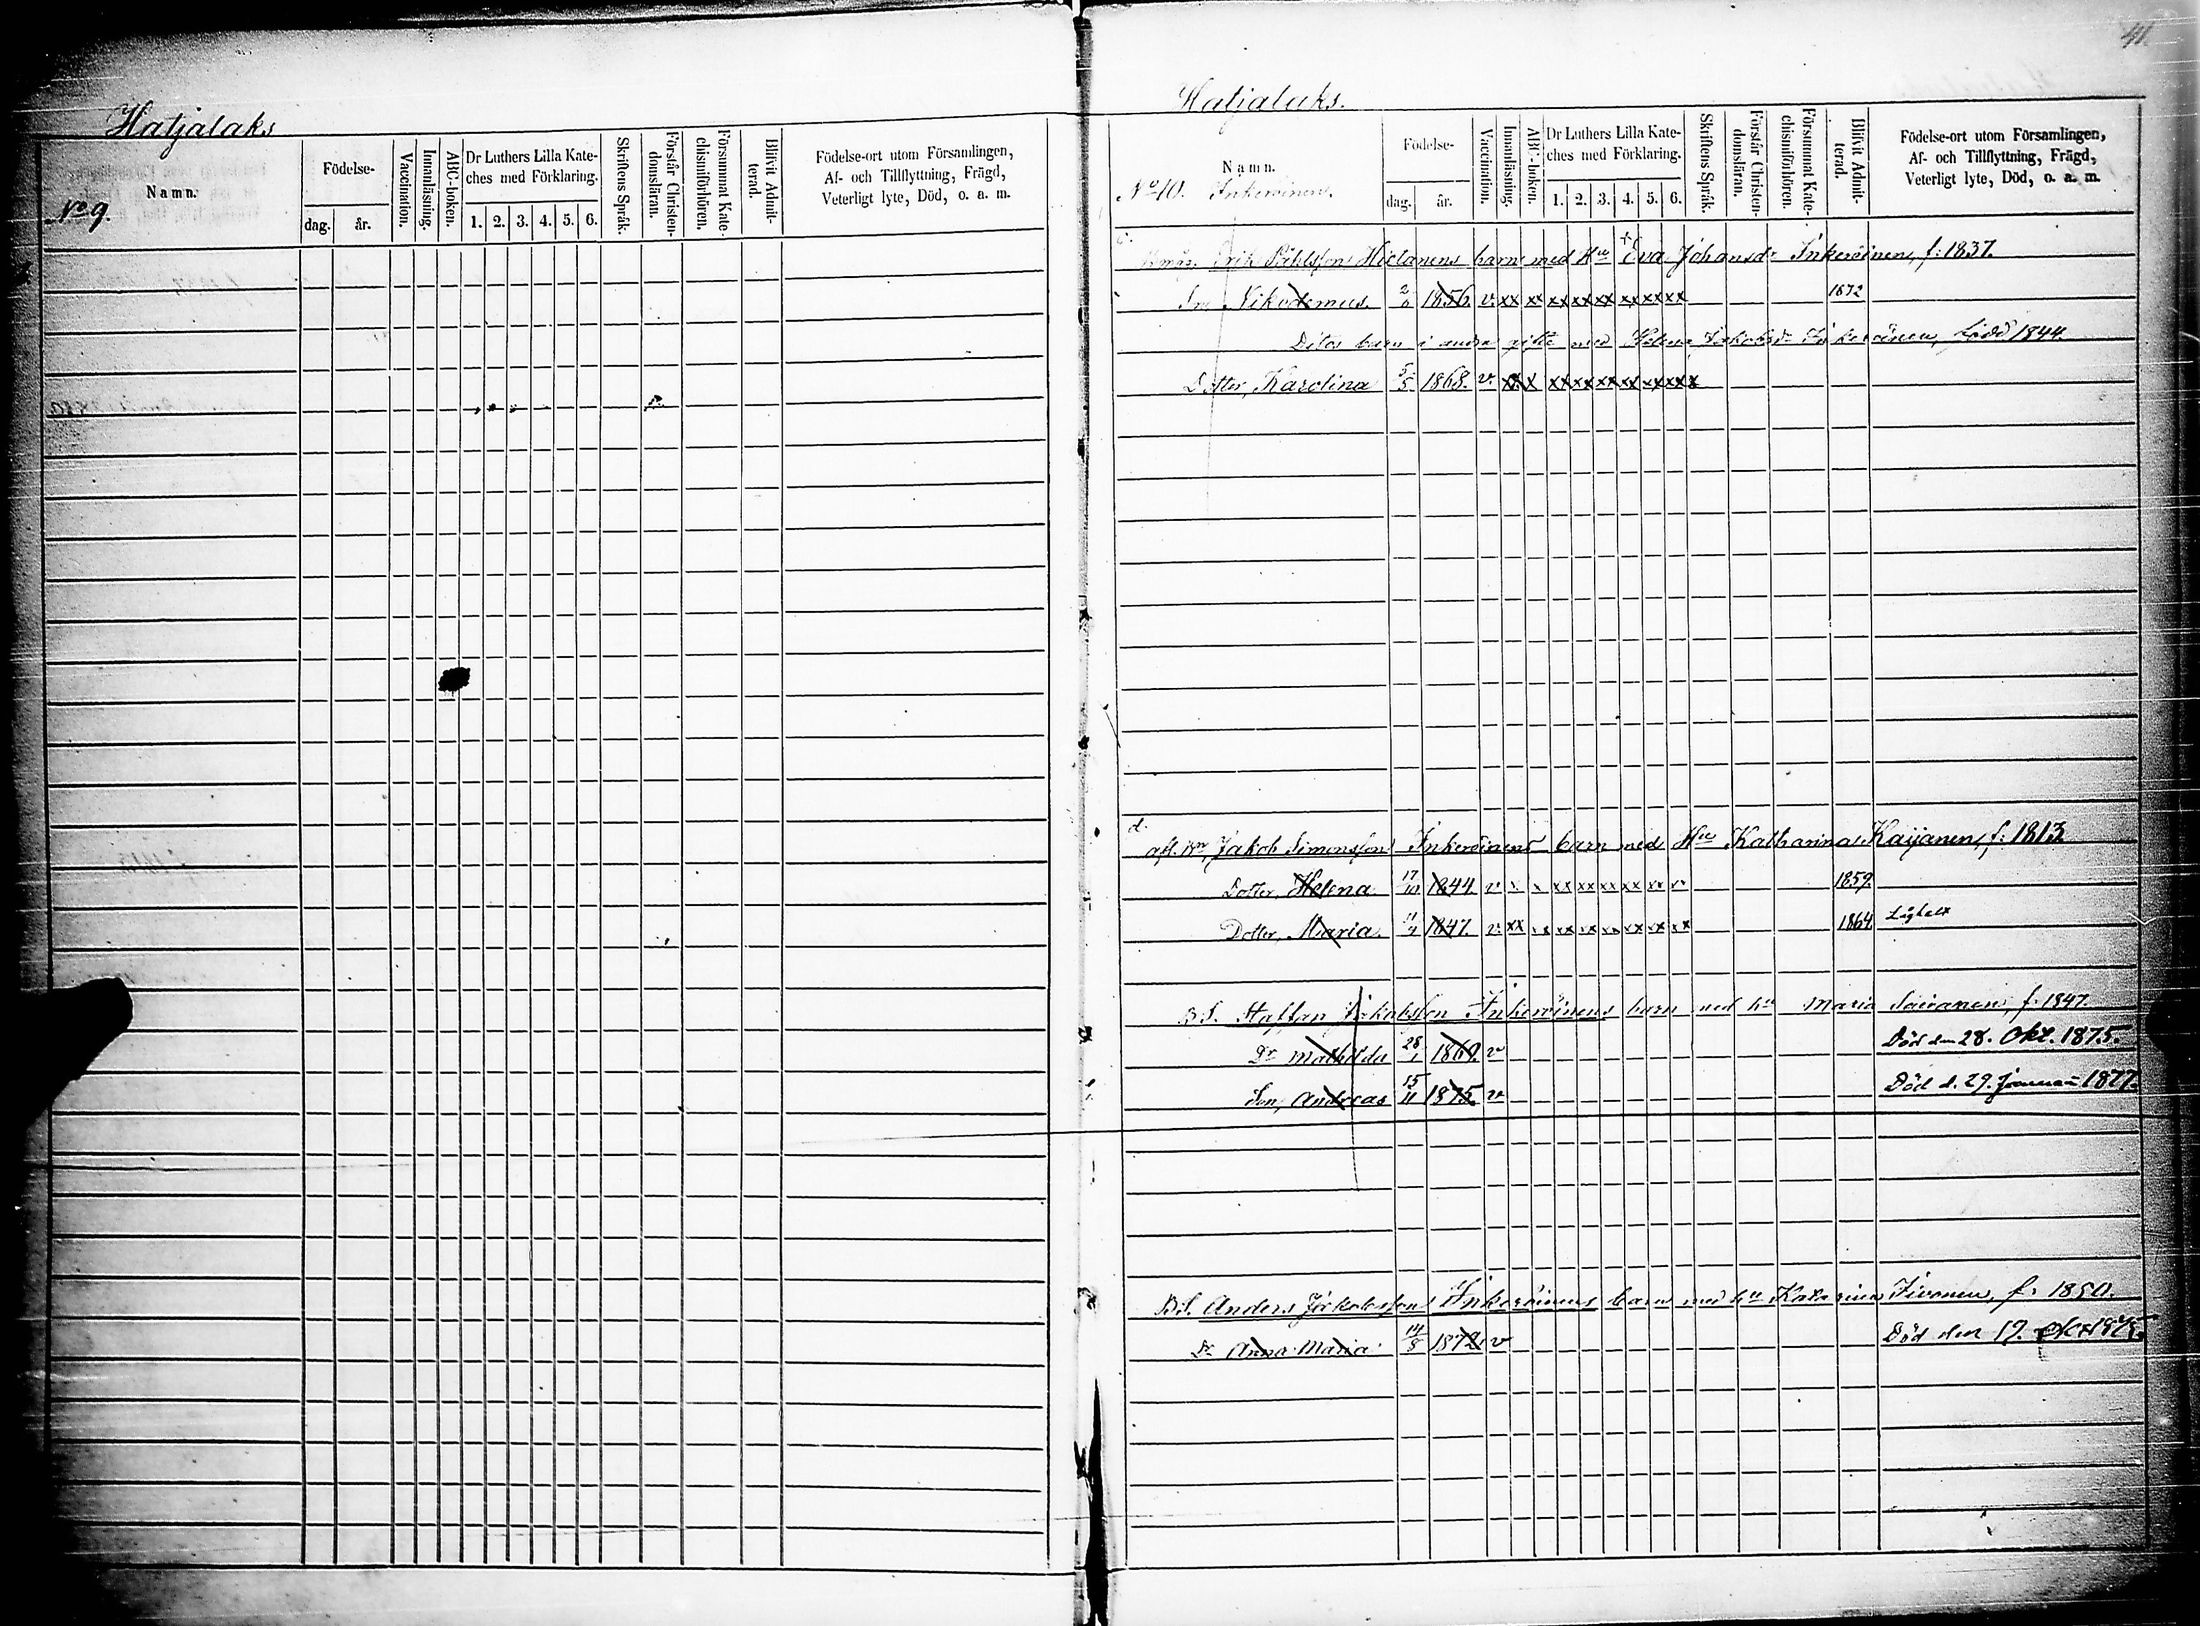 Hatjalaks
Namn.
Födelse-
dag. år.
Vaccination.
Innanläsning.
ABC-boken.
Dr Luthers Lilla Kate-
ches med Förklaring.
1. 2. 3. 4. 5. 6.
Skriftens Språk.
Förstår Christen-
domsläran.
Försummat Kate-
chismiförhören.
Blifvit Admit-
terad.
Födelse-ort utom Församlingen,
Af- och Tillflyttning, Frägd,
Veterligt lyte, Död, o. a. m.
No 9.
41.
Hatjalaks.
Namn.
No 10. Inkeroinen.
Födelse-
dag. år.
Vaccination.
Innanläsning.
ABC-boken.
Dr Luthers Lilla Kate-
ches med Förklaring.
1. 2. 3. 4. 5. 6.
Skriftens Språk.
Förstår Christen-
domsläran.
Försummat Kate-
chismiförhören.
Blifvit Admit-
terad.
Födelse-ort utom Församlingen,
Af- och Tillflyttning, Frägd,
Veterligt lyte, Död, o. a. m.
c.
Erik Påhlsson Hietanens barn med Hu + Eva Johansdr Inkeröinen, f: 1837.
Son, Nikodemus. 1856. v. xx xx xx xx xx xx xx xx 1872
Ditos barn i andra gifte med Helena Jakobsdr Inkeröinen, född 1844.
Dotter, Karolina 5/5 1868. v. xx x xx xx xx xx xx xx x
d.
afl. Bn, Jakob Simonsson Inkeröinens barn med Hu Katharina Kaijanen, f: 1813.
Dotter, Helena 17/10 1844 v x x xx xx xx xx xx xx 1859.
Dotter, Maria. 11/4 1847. v. xx xx xx xx xx xx xx xx 1864
BS. Staffan Jakobsson Inkeröinens barn med hu Maria Saivanen, f. 1847.
Dr Mathilda 28/1 1869. v Död den 28. Okt. 1875.
Son, Andreas 15/11 1875. v Död d. 29. Januari 1877.
BS. Anders Jakobsson Inkeröinens barn med hu Katarina Tivonen, f. 1850.
Dr Anna Maria 14/8 1872. v Död den 19. Okt 1875.